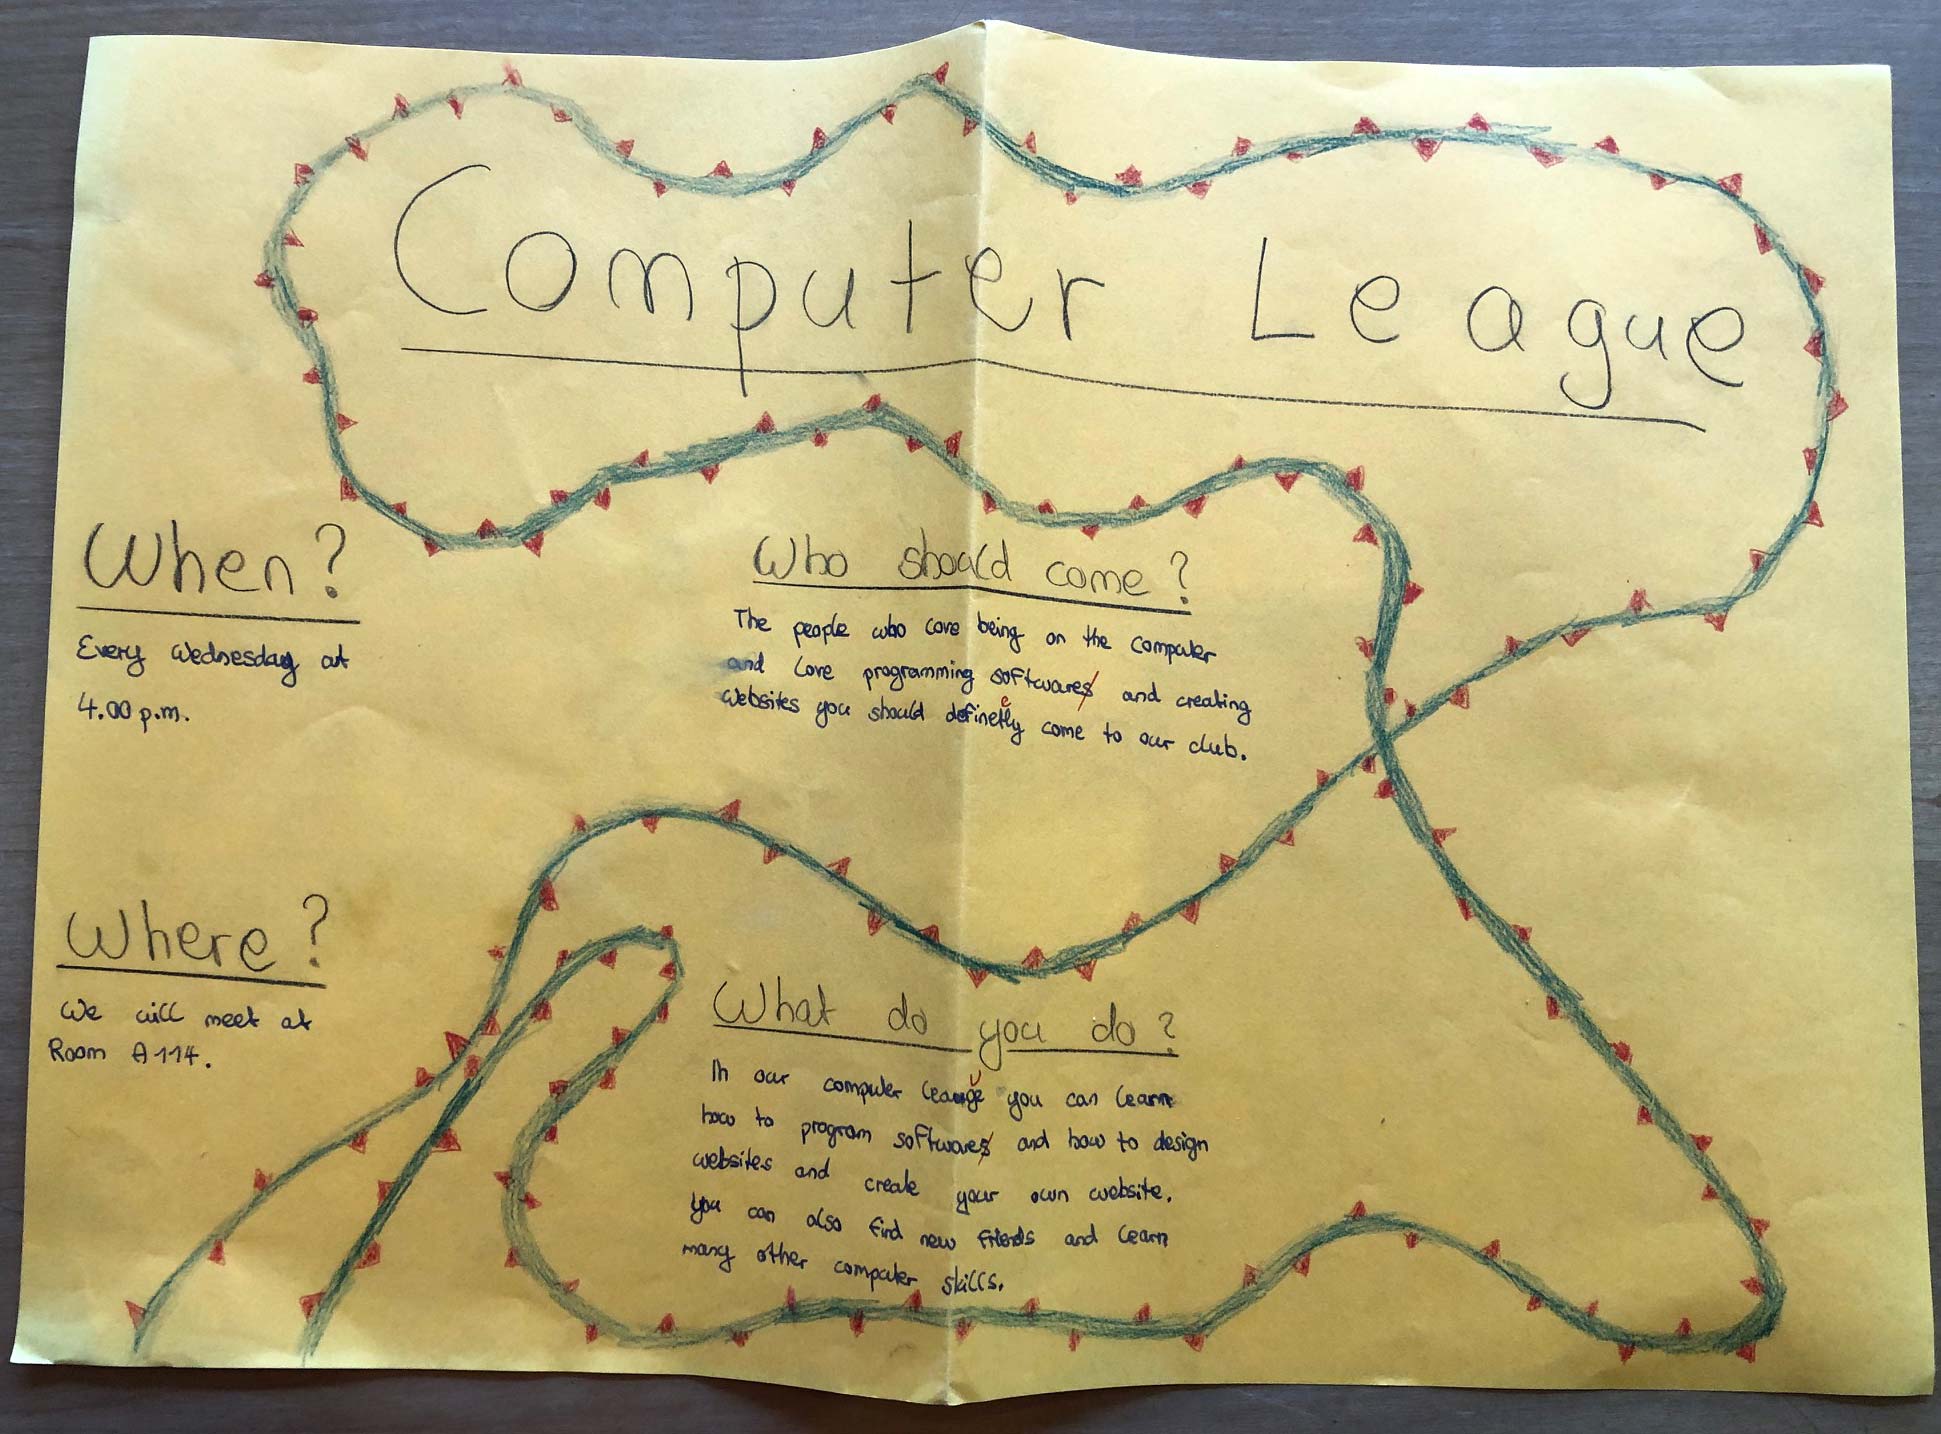 Computer League
When?
Every Wednesday at
4.00 p.m.
Who should come?
The people who love being on the computer
and love programming softwares and creating
websites you should definetly come to our club.
Where?
We will meet at
Room A114.
What do you do?
In our computer leauge you can learn
how to program softwares and how to design
websites and create your own website.
You can also find new friends and learn
many other computer skills.